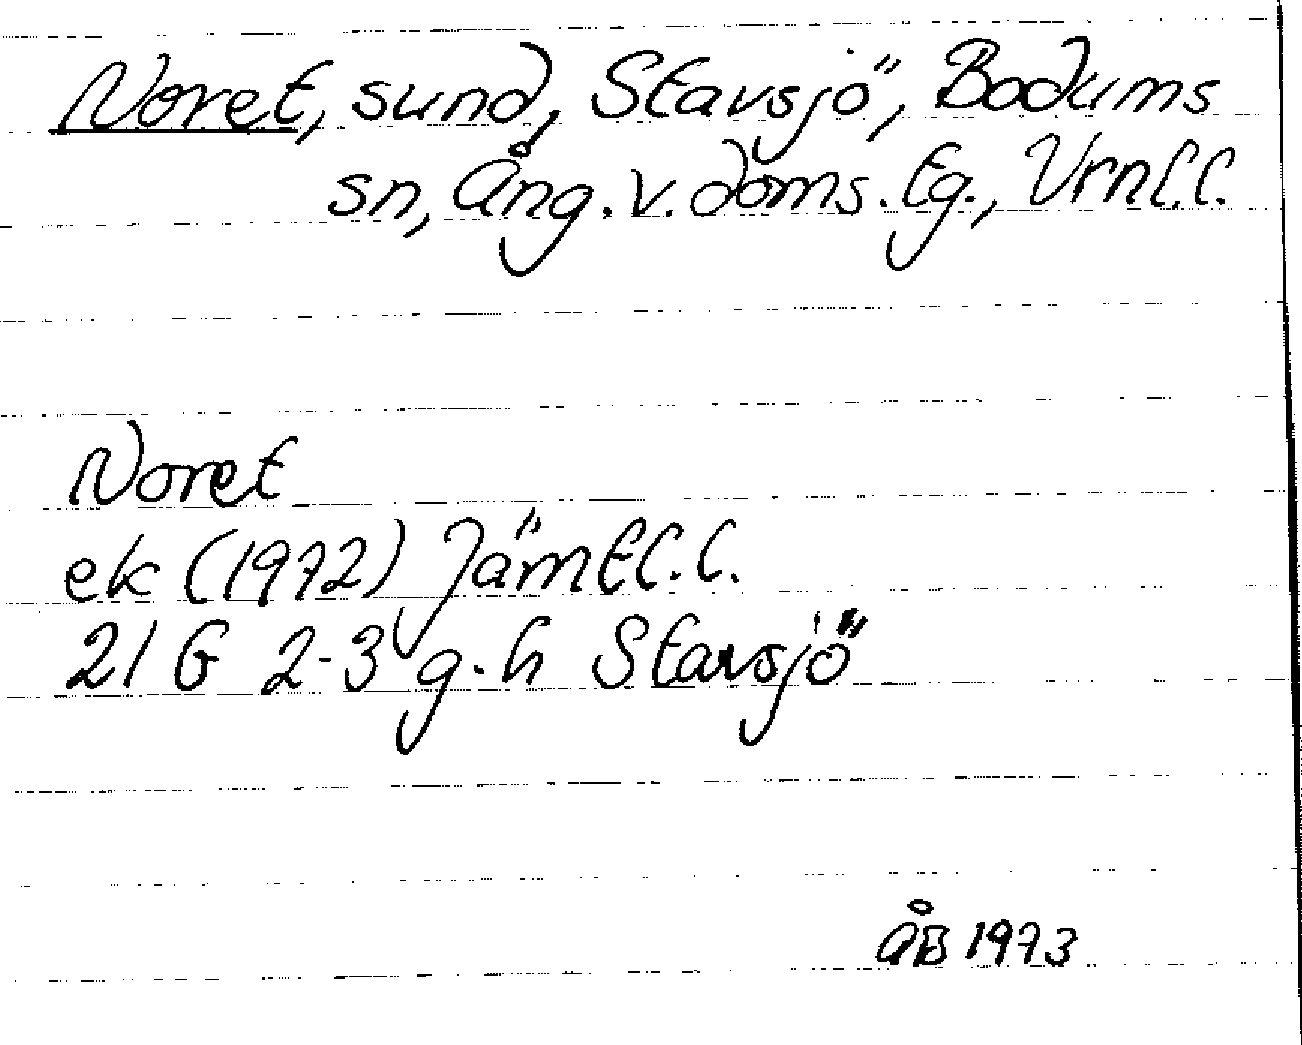 Noret, sund, Stavsjö, Bodums
sn, Ång. v. doms. tg., Vrnl.l.
Noret
ek (1972) Jämtl.l.
21 G 2-3 g-h Stavsjö
ÅB 1973